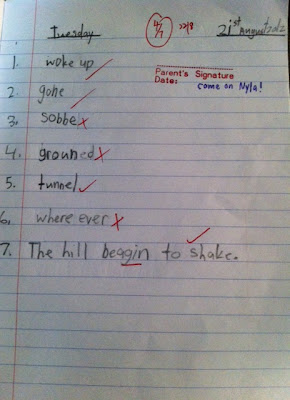 Tuesday 4/7 22/8 21st August 2012
Parent's Signature
Date: come on Nyla!
1. woke up
2. gone
3. sobbe
4. grouned
5. tunnel
6. where ever
7. The hill beggin to shake.